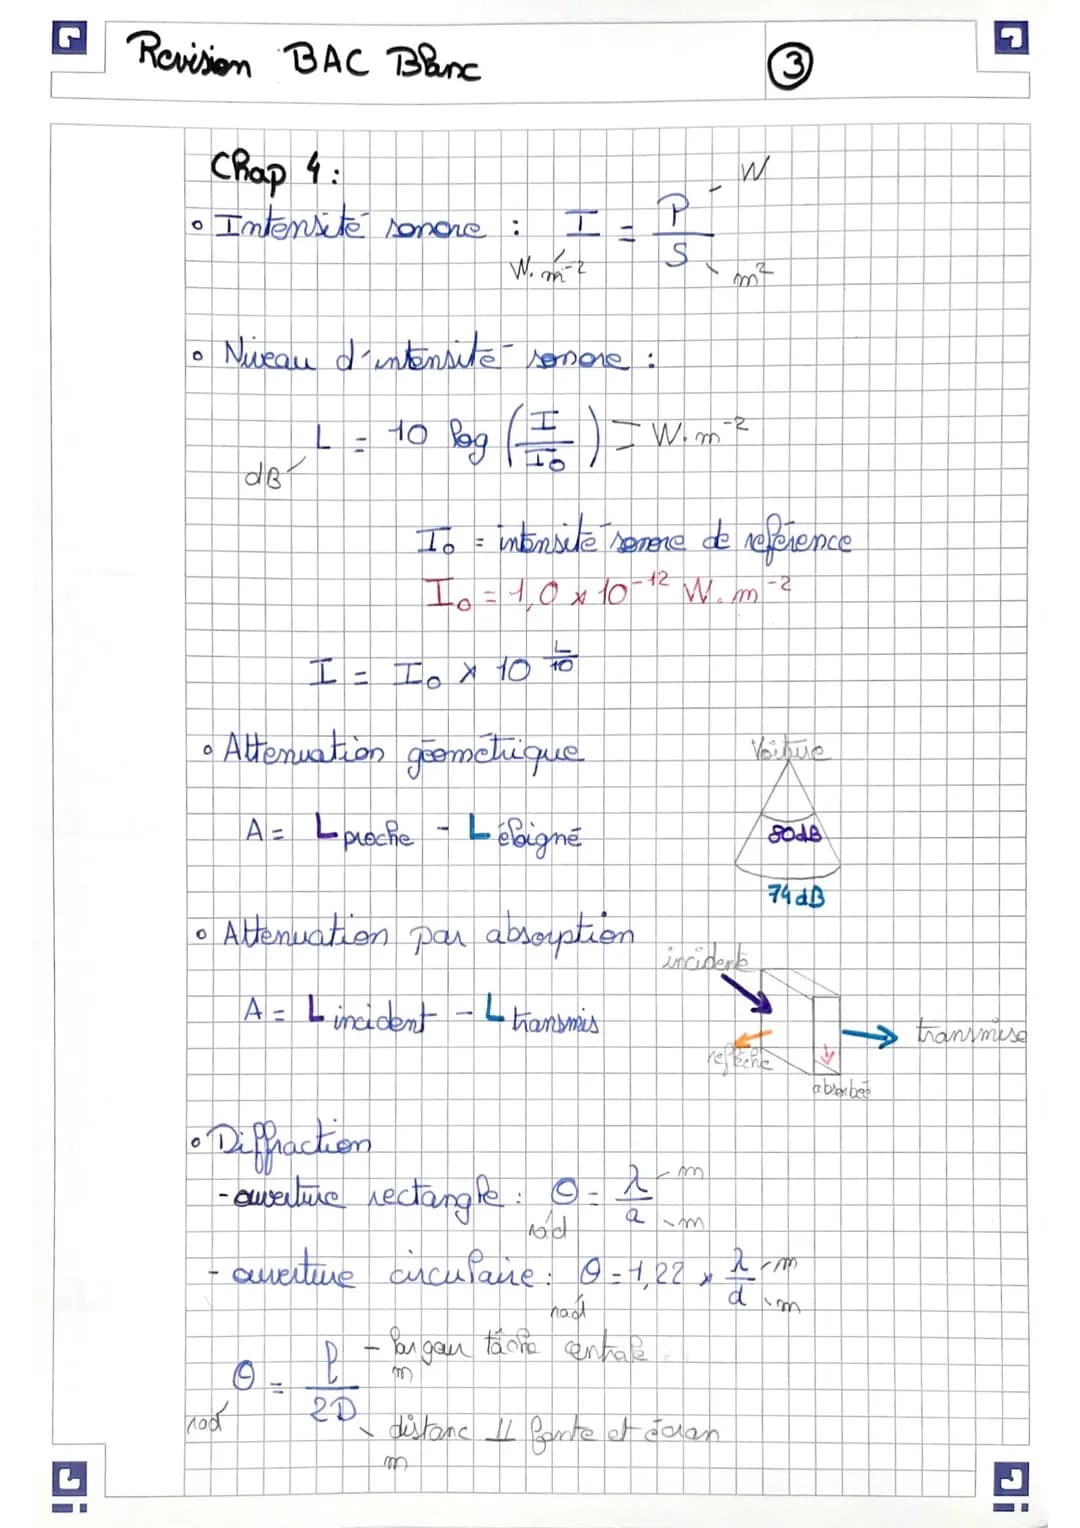 Revision BAC Blanc
3
Chap 4 :
• Intensité sonore : I = P/S
W
W.m⁻²
m²
• Niveau d'intensité sonore :
L = 10 log (I/I₀) W.m⁻²
dB
I₀ = intensité sonore de reférence
I₀ = 1,0 x 10⁻¹² W.m⁻²
I = I₀ x 10^(L/10)
• Attenuation géométrique
Voiture
A = L proche - L éloigné
80dB
74dB
• Attenuation par absorption
incidente
A = L incident - L transmis
transmise
réfléchie
absorbée
• Diffraction
- ouverture rectangle : θ = λ/a
m
rad
m
- ouverture circulaire : θ = 1,22 x λ/d
m
rad
m
θ = l/2D
- largeur tâche centrale
m
rad
distance || fente et écran
m